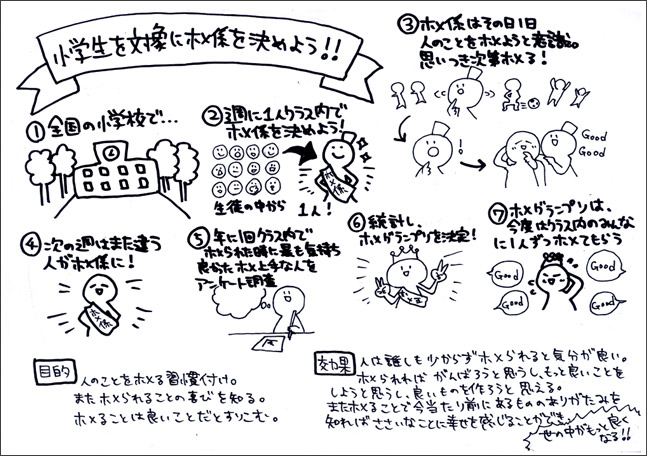 小学生を対像にホメ係を決めよう!!
①全国の小学校で…
②週に1人クラス内で
ホメ係を決めよう!
ホメ係
生徒の中から
1人!
③ホメ係はその日1日
人のことをホメようと意識。
思いつき次第ホメる!
!
Good
Good
④次の週はまた違う
人がホメ係に!
ホメ係
⑤年に1回クラス内で
ホメられた時に最も気持ち
良かったホメ上手な人を
アンケート調査
⑥統計し、
ホメグランプリを決定!
ホメる
⑦ホメグランプリは、
今度はクラス内のみんな
に1人ずつホメてもらう
Good
Good
Good
Good
目的
人のことをホメる習慣付け。
またホメられることの喜びを知る。
ホメることは良いことだとすりこむ。
効果
人は誰しも少からずホメられると気分が良い。
ホメられれば がんばろうと思うし、もっと良いことを
しようと思うし、良いものを作ろうと思える。
またホメることで今当たり前にあるもののありがたみを
知ればささいなことに幸せを感じることができ、
世の中がもっと良く
なる!!